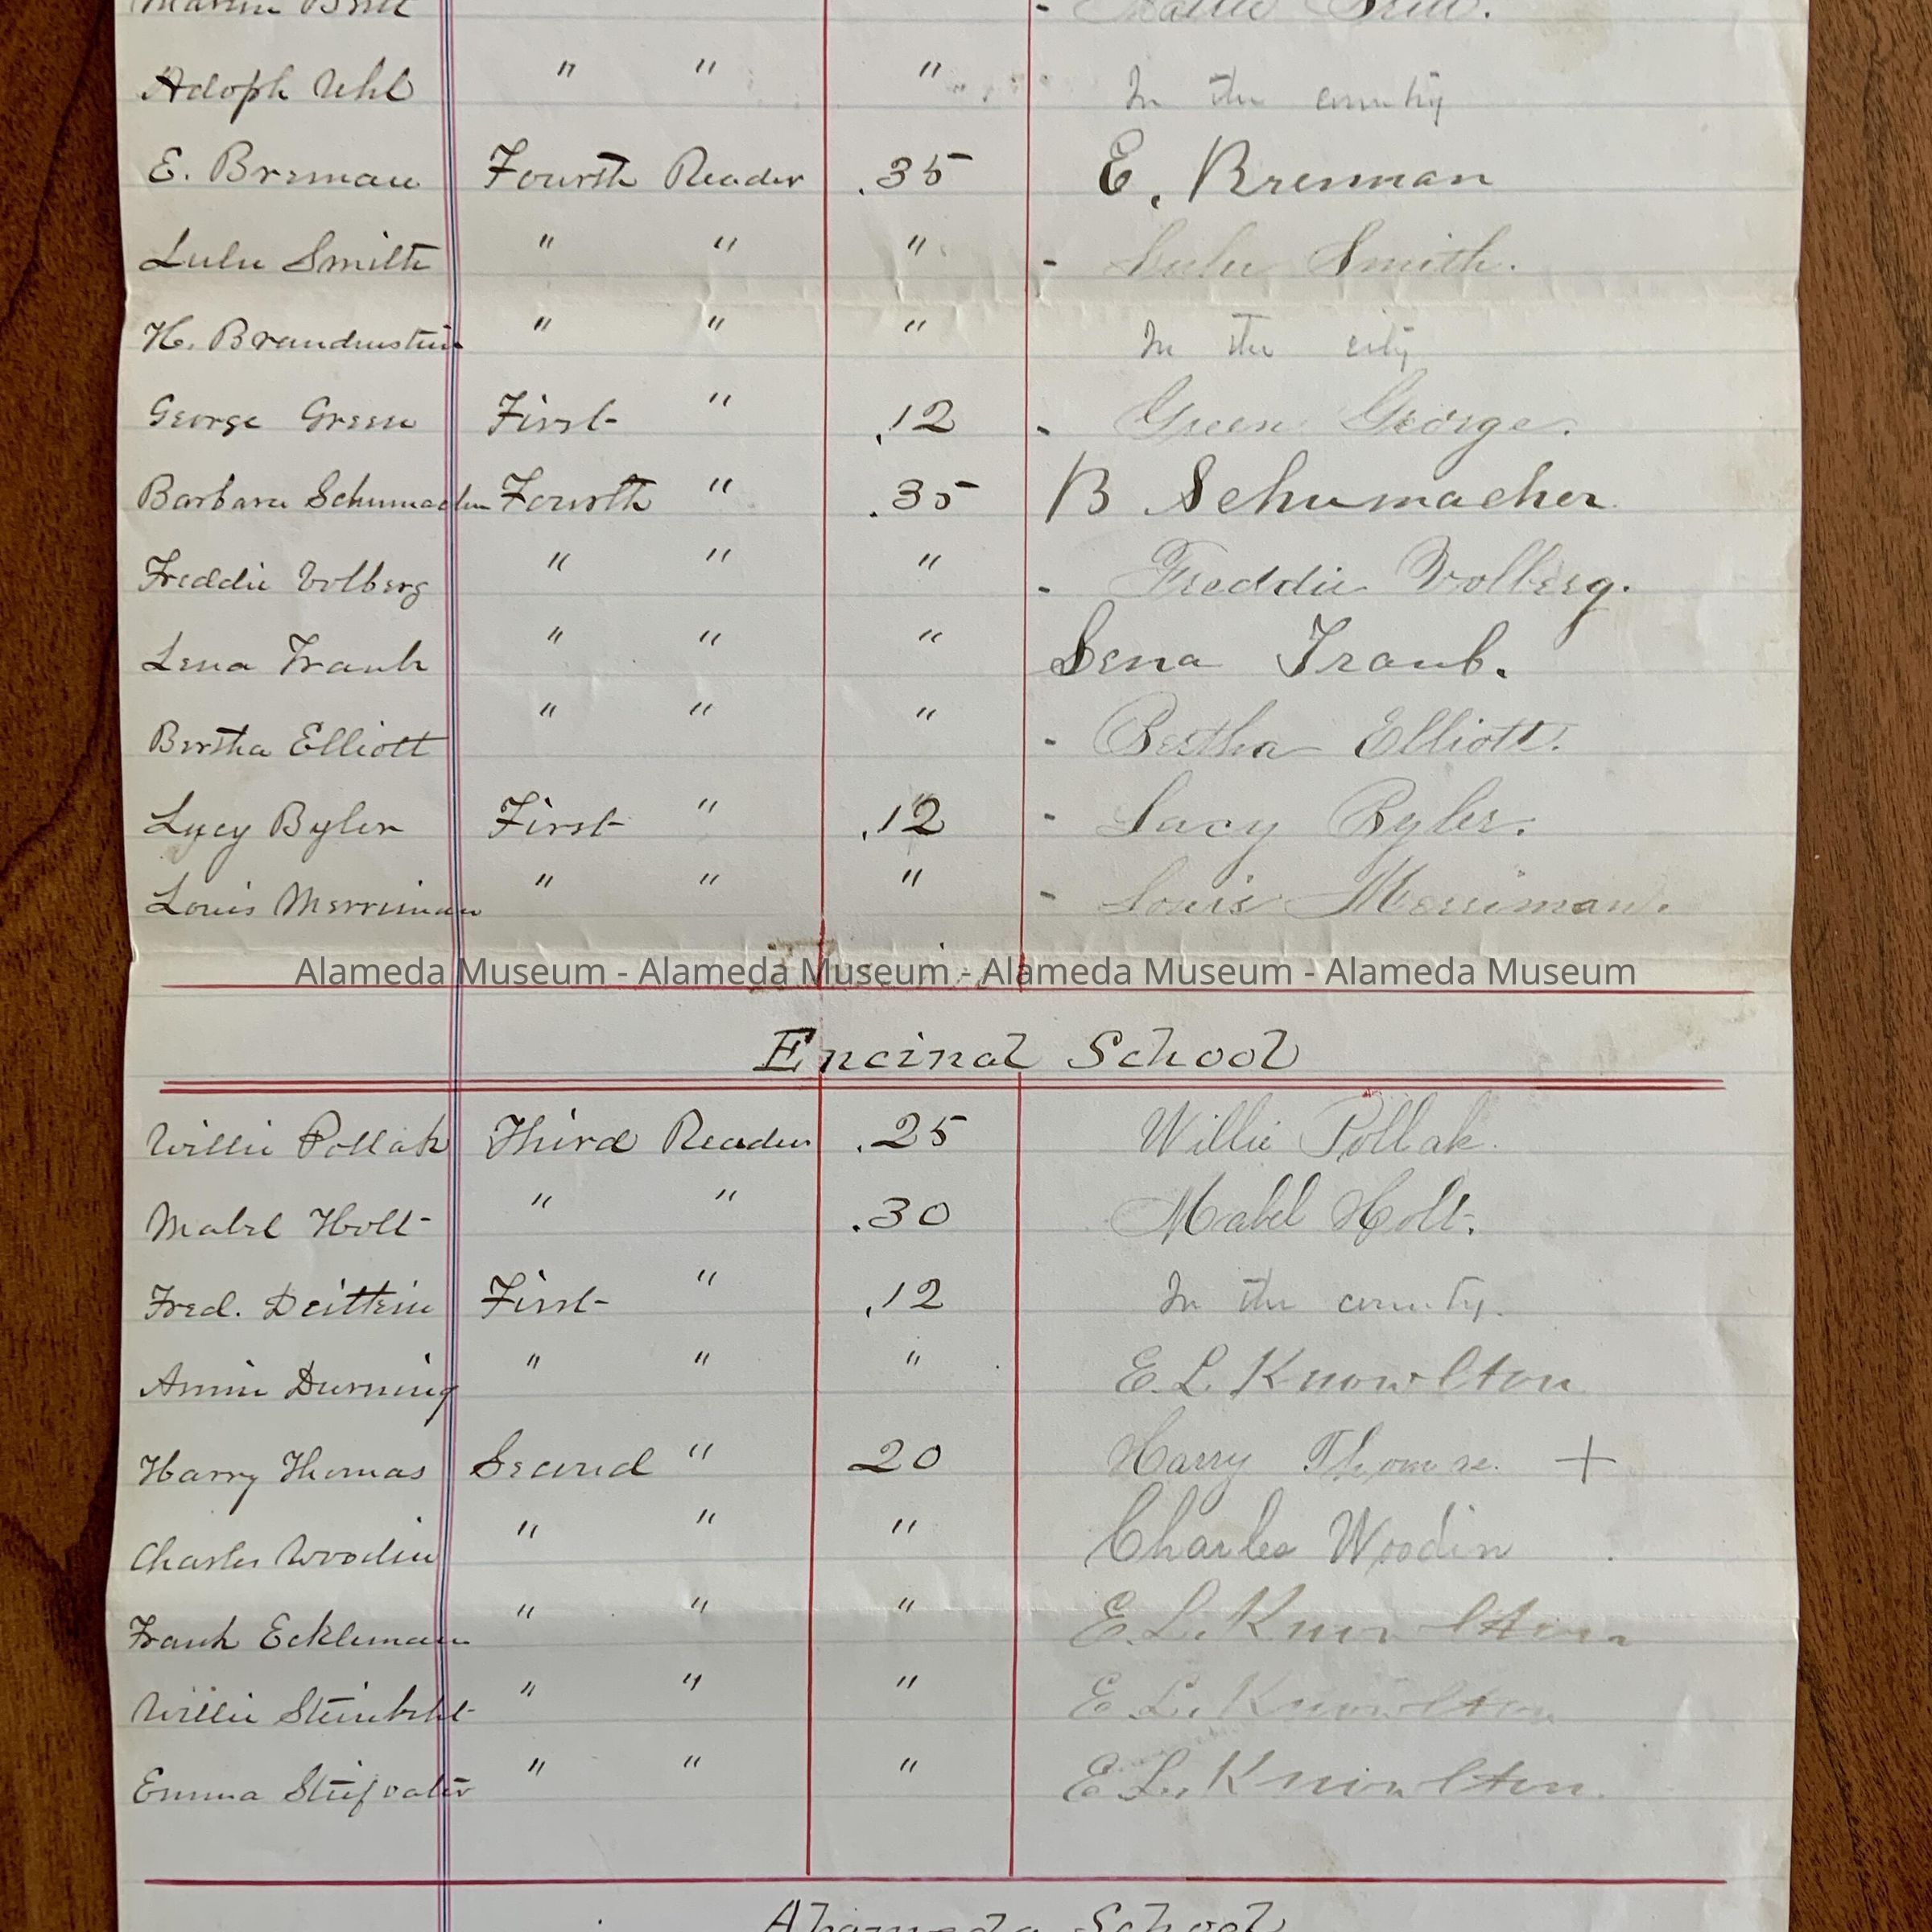 Adolph Uhl " " " In the country
E. Brennan Fourth Reader .35 E. Brennan
Lulu Smith " " " - Lulu Smith.
H. Brandenstein " " " In the city
George Green First " .12 - Green George.
Barbara Schumacher Fourth " .35 B Schumacher
Freddie Volberg " " " - Freddie Volberg.
Lena Traub " " " Lena Traub.
Bertha Elliott " " " - Bertha Elliott.
Lucy Byler First " .12 - Lucy Byler.
Louis Merriman " " " - Louis Merriman.
Alameda Museum - Alameda Museum - Alameda Museum - Alameda Museum
Encinal School
Willie Pollak Third Reader .25 Willie Pollak.
Mabel Holt " " .30 Mabel Holt.
Fred. First " .12 In the country.
Annie Durning " " " E. L. Knowlton
Harry Thomas Second " 20 Harry +
Charles Woodin " " " Charles Woodin
Frank Eckleman " " " E. L. Knowlton
Willie " " " E. L. Knowlton
Emma Stiefvater " " " E. L. Knowlton.
Alameda School